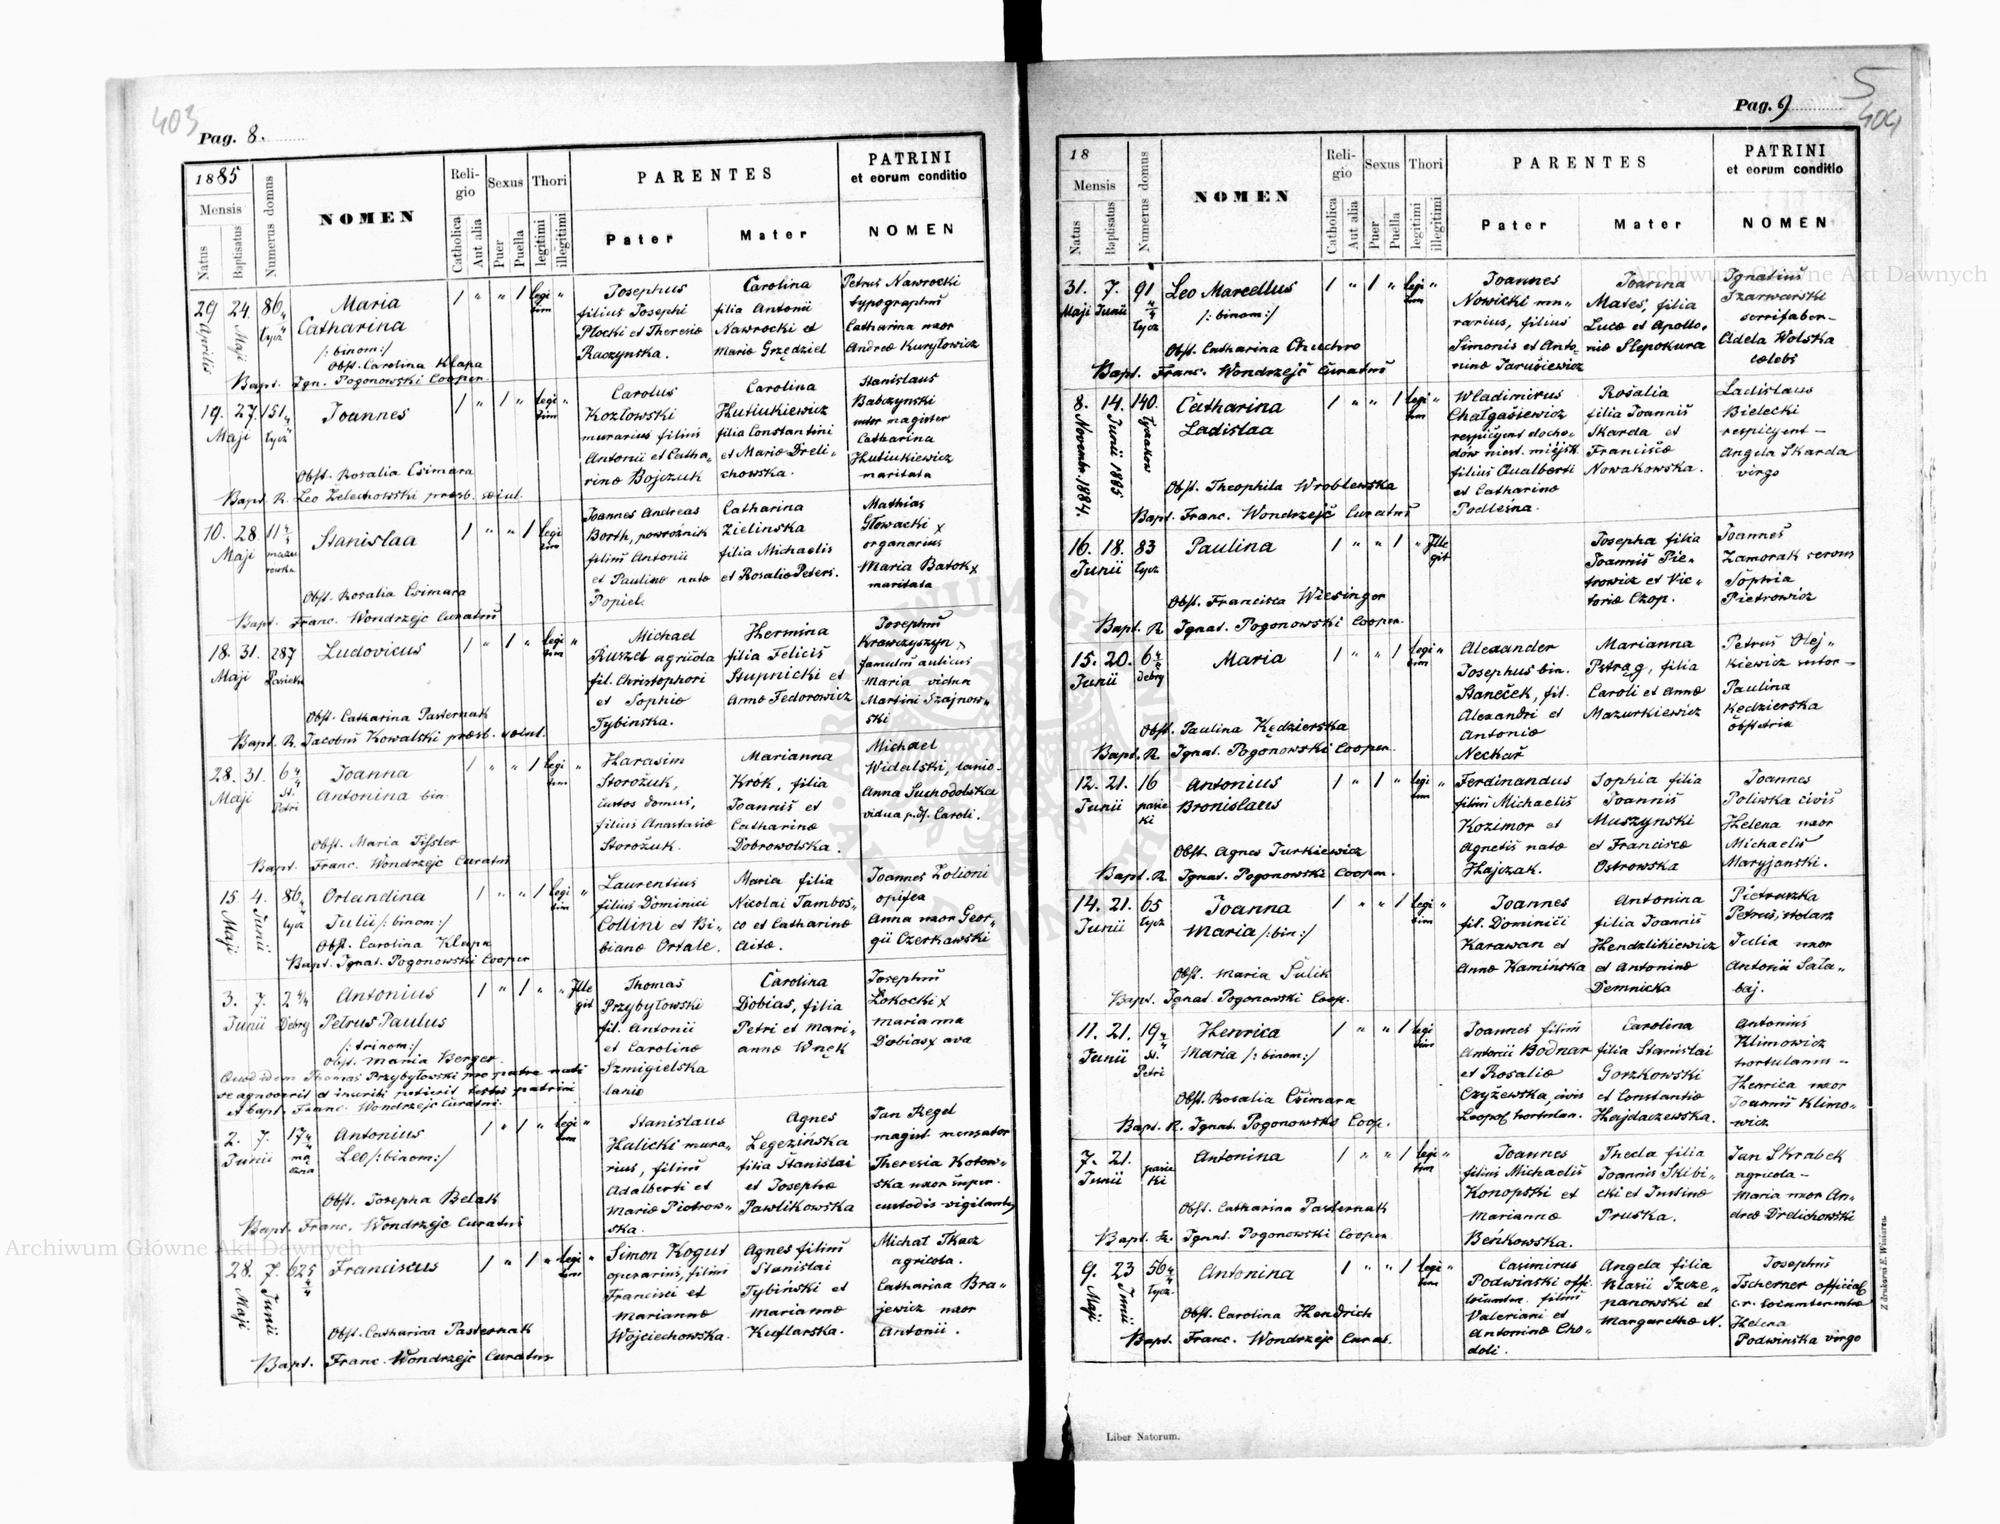 403
Pag. 8.
1885
Mensis
Natus
Baptisatus
Numerus domus
NOMEN
Religio
Catholica
Aut alia
Sexus
Puer
Puella
Thori
legitimi
illegitimi
PARENTES
Pater
Mater
PATRINI
et eorum conditio
NOMEN
29 Aprilis
24. Maji
Maria
Catharina
/: binom:/
Obst. Carolina Klapa
Bapt. Ign. Pogonowski Cooper.
Josephus
filius Josephi
Płocki et Theresiæ
Raczynska.
Carolina
filia Antonii
Nawrocki et
Mariæ Grzędziel
Petrus Nawrocki
typographus
Catharina uxor
Andreæ Kuryłowicz
19. 27.
Maji
Joannes
Obst. Rosalia Csimara
Bapt. R. Leo Zelechowski presb.
Carolus
Kozłowski
murarius filius
Antonii et Catha„
rinæ Bojczuk
Carolina
Hutiukiewicz
filia Constantini
et Mariæ Dreli„
chowska.
Stanislaus
Babczynski
sutor magister
Catharina
Hutiukiewicz
maritata
10. 28.
Maji
Stanislaa
Obst. Rosalia Csimara
Bapt. Franc. Wondrzejc Curatus
Joannes Andreas
Borth, powroźnik
filius Antonii
et Paulinæ natæ
Popiel.
Catharina
Zielinska
filia Michaelis
et Rosaliæ Peters.
Mathias
Głowacki x
organarius
Maria Batok x
maritata
18. 31. 287
Maji
Ludovicus
Obst. Catharina Pasternak
Bapt. R. Jacobus Kowalski presb.
Michael
Ruszel agricola
fil. Christophori
et Sophiæ
Tybinska.
Hermina
filia Felicis
Stupnicki et
Annæ Fedorowicz
Josephus
Krawczyszyn x
famulus aulicus
Maria vidua
Martini Szajnow„
ski
28. 31. 6 4/4
Maji St. Petri
Joanna
Antonina bin.
Obst. Maria Tissler
Bapt. Franc. Wondrzejc Curatus
Harasim
Storożuk,
custos domus,
filius Anastasiæ
Storożuk.
Marianna
Krok, filia
Joannis et
Catharinæ
Dobrowolska.
Michael
Widalski, lanio
Anna Suchodolska
vidua p. df. Caroli.
15. Maji
4. Junii
Orlandina
Julii /: binom:/
Obst. Carolina Klapa
Bapt. Ignat. Pogonowski Cooper
Laurentius
filius Dominici
Collini et Bi„
bianæ Ortale.
Maria filia
Nicolai Tambos„
co et Catharinæ
Aitæ.
Joannes Zolioni
opifex
Anna uxor Geor„
gii Czerkawski
3. 7. 2 4/4
Junii Debry
Antonius
Petrus Paulus
/: trinom:/
Obst. Maria Berger
Quod idem Thomas Przybyłowski pro patre nati
se agnoverit et inscribi petierit testes patrini
et bapt. Franc. Wondrzejc Curatus.
Thomas
Przybyłowski
fil. Antonii
et Carolinæ
Szmigielska
lanio
Carolina
Dobias, filia
Petri et Mari„
annæ Wnęk
Josephus
Łokocki x
Marianna
Dobias x ava
2. 7. 17 4/4
Junii
Antonius
Leo /: binom:/
Obst. Josepha Belak
Bapt. Franc. Wondrzejc Curatus
Stanislaus
Halicki mura„
rius, filius
Adalberti et
Mariæ Piotrow„
ska.
Agnes
Legezińska
filia Stanislai
et Josephæ
Pawlikowska
Jan Kegel
magist. mensator
Theresia Kotow„
ska uxor super.
custodis vigilantis
28. Maji
7. Junii
Franciscus
Obst. Catharina Pasternak
Bapt. Franc. Wondrzejc Curatus
Simon Kogut
operarius, filius
Francisci et
Mariannæ
Wojciechowska.
Agnes filius
Stanislai
Tybiński et
Mariannæ
Kuflarska.
Michał Tkacz
agricola.
Catharina Bra„
jewicz uxor
Antonii.
5
404
Pag. 9
18
Mensis
Natus
Baptisatus
Numerus domus
NOMEN
Religio
Catholica
Aut alia
Sexus
Puer
Puella
Thori
legitimi
illegitimi
PARENTES
Pater
Mater
PATRINI
et eorum conditio
NOMEN
31. 7. 91 4/4
Maji Junii Łycz
Leo Marcellus
/: binom:/
Obst. Catharina Chuchro
Bapt. Franc. Wondrzejc Curatus
Joannes
Nowicki mu„
rarius, filius
Simonis et Anto„
ninæ Jarusiewicz
Joanna
Mates, filia
Lucæ et Apollo„
niæ Slepokura
Ignatius
Szarwarski
serrifaber
Adela Wolska
cælebs
8. Novembr. 1884.
14. Junii 1885
140. Łyczakow
Catharina
Ladislaa
Obst. Theophila Wroblewska
Bapt. Franc. Wondrzejc Curatus
Wladimirus
Chałgasiewicz
respicyent docho„
dów niest. miejsk.
filius Aualberti
et Catharinæ
Podleśna.
Rosalia
filia Joannis
Skarda et
Franciscæ
Nowakowska.
Ladislaus
Bielecki
respicyent
Angela Skarda
virgo
16. 18. 83
Junii Łycz
Paulina
Obst. Francisca Wiesinger
Bapt. R. Ignat. Pogonowski Cooper.
Josepha filia
Joannis Pie„
trowicz et Vic„
toriæ Czop.
Joannes
Zamorak
Sophia
Pietrowicz
15. 20. 6 4/4
Junii Debry
Maria
Obst. Paulina Kędzierska
Bapt. R. Ignat. Pogonowski Cooper.
Alexander
Josephus bin.
Staneček, fil.
Alexandri et
Antoniæ
Neckař
Marianna
Pstrąg, filia
Caroli et Annæ
Mazurkiewicz
Petrus Olej„
kiewicz sutor
Paulina
Kędzierska
obstetrix
12. 21. 16
Junii pasieki
Antonius
Bronislaus
Obst. Agnes Turkiewicz
Bapt. R. Ignat. Pogonowski Cooper.
Ferdinandus
filius Michaelis
Kozimor et
Agnetis natæ
Hajczak.
Sophia filia
Joannis
Muszynski
et Franciscæ
Ostrowska
Joannes
Poliwka civis
Helena uxor
Michaelis
Maryjanski.
14. 21. 65
Junii Łycz
Joanna
Maria /: bin:/
Obst. Maria Sulik
Bapt. Ignat. Pogonowski Coop.
Joannes
fil. Dominici
Karawan et
Annæ Kamińska
Antonina
filia Joannis
Hendzlikiewicz
et Antoninæ
Demnicka
Pietruszka
Petrus, stolarz
Julia uxor
Antonii Sała„
baj.
11. 21. 19 4/4
Junii St. Petri
Henrica
Maria /: binom:/
Obst. Rosalia Csimara
Bapt. R. Ignat. Pogonowski Coop.
Joannes filius
Antonii Bodnar
et Rosaliæ
Czyżewska, civis
Leopol. hortulan.
Carolina
filia Stanislai
Gorzkowski
et Constantiæ
Hajdaczewska.
Antonius
Klimowicz
hortulanus
Henrica uxor
Joannis Klimo„
wicz
7. 21.
Junii pasieki
Antonina
Obst. Catharina Pasternak
Bapt. R. Ignat. Pogonowski Cooper.
Joannes
filius Michaelis
Konopski et
Mariannæ
Beńkowska.
Thecla filia
Joannis Skibi„
cki et Justinæ
Pruska.
Jan Skrabek
agricola
Maria uxor An„
dreæ Drelichowski
9. Maji
23 Junii
56 4/4 Łycz.
Antonina
Obst. Carolina Hendrich
Bapt. Franc. Wondrzejc Curat.
Casimirus
Podwinski off.
locumten. filius
Valeriani et
Antoninæ Cho„
doli.
Angela filia
Klasii Szcze„
panowski et
Margarethæ N.
Josephus
Tscherner official
c.r. locumtenentiæ
Helena
Podwinska virgo
Z drukarni E. Winiarza.
Liber Natorum.
Archiwum Główne Akt Dawnych
Archiwum Główne Akt Dawnych